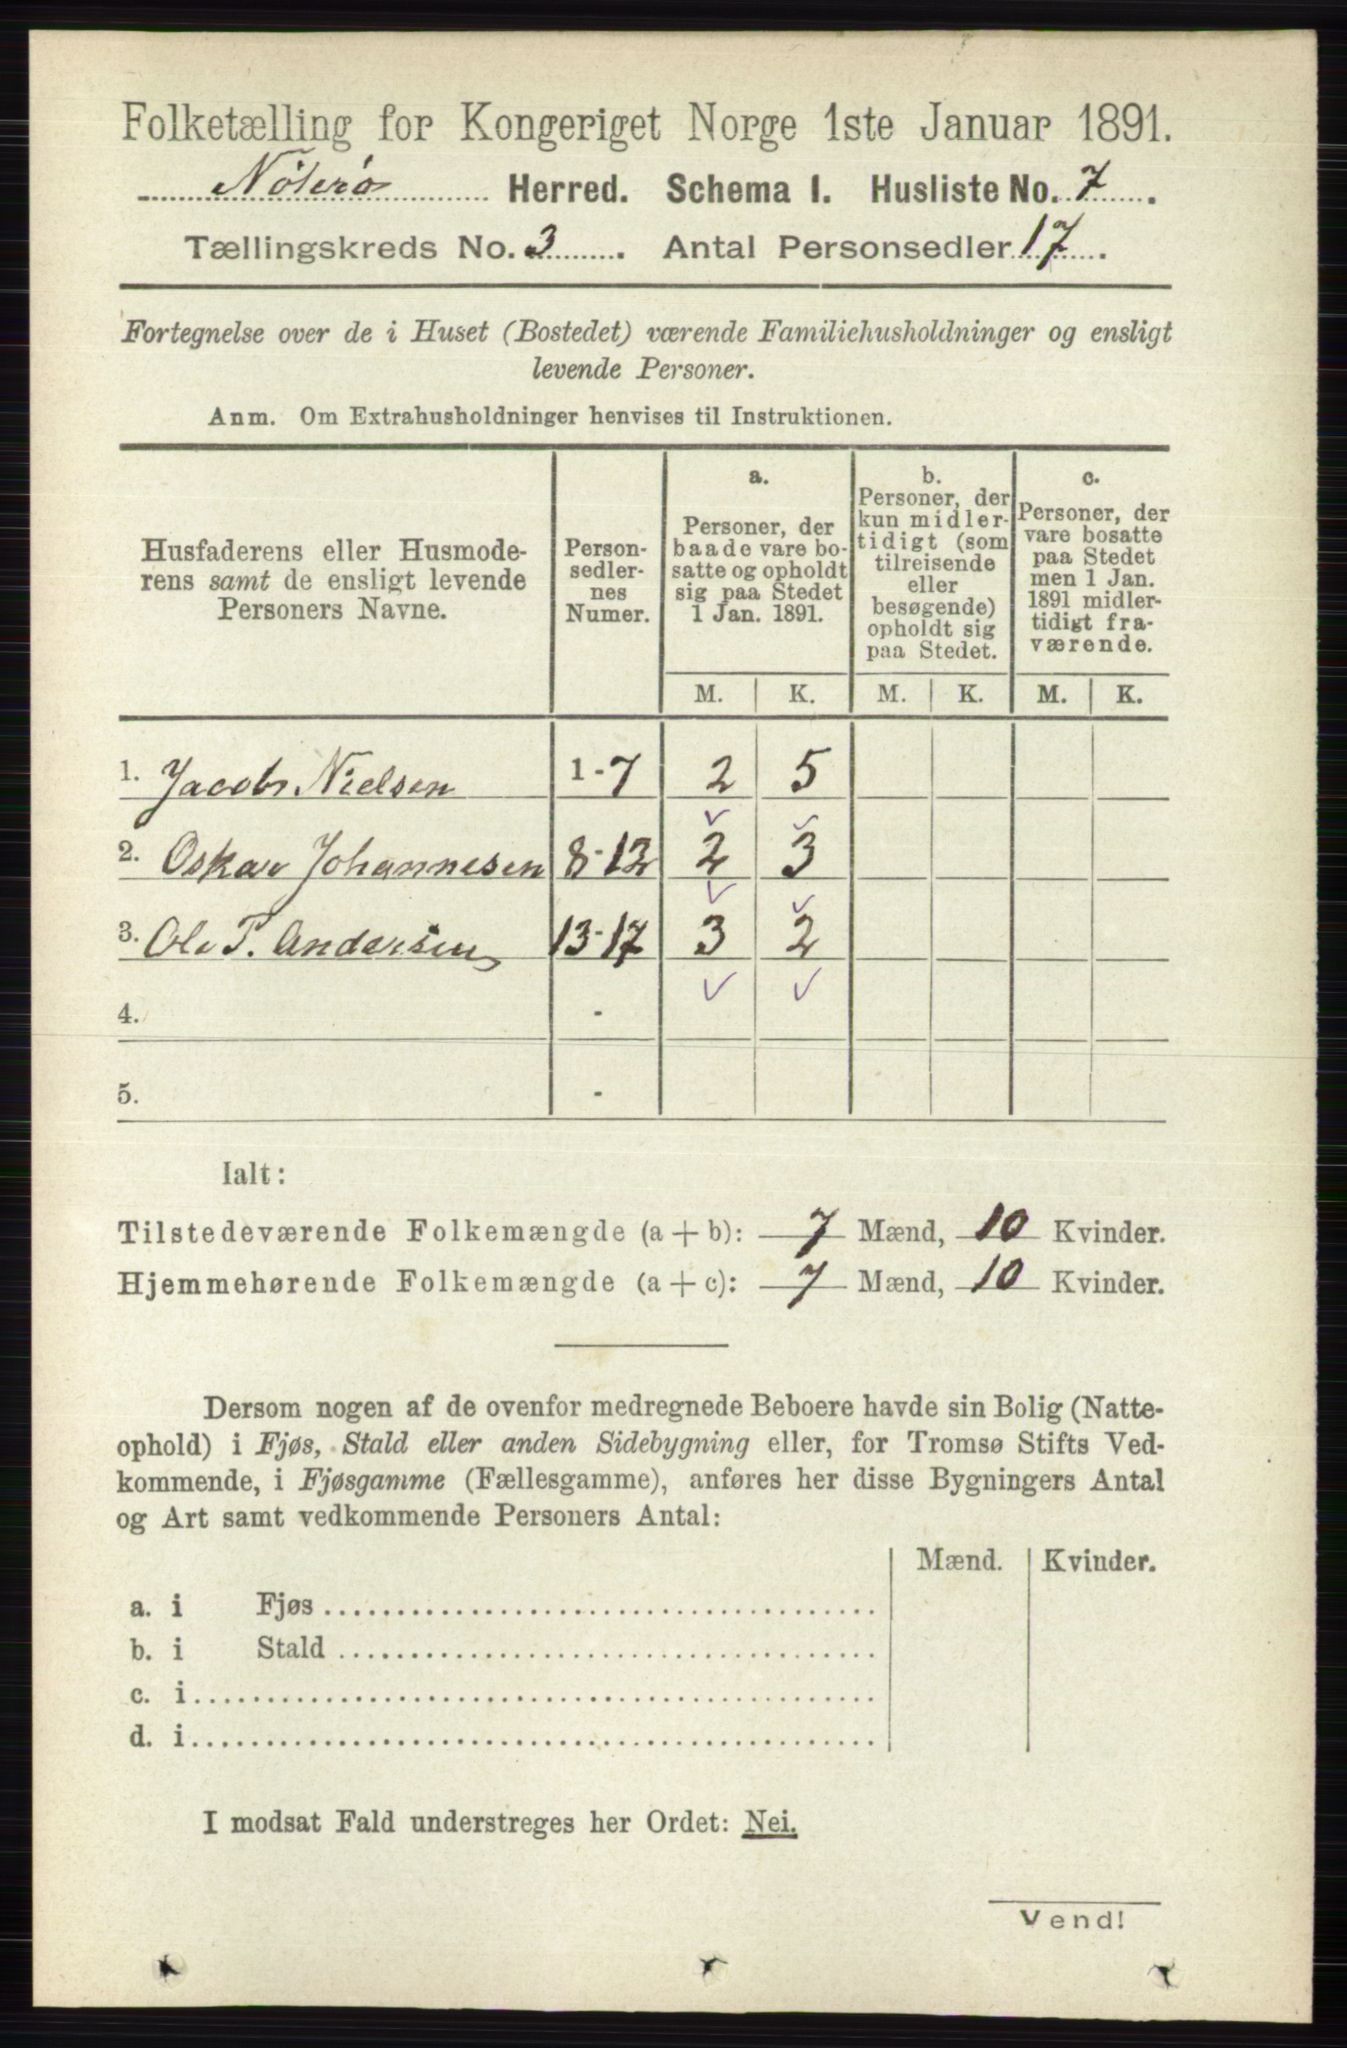 Folketælling for Kongeriget Norge 1ste Januar 1891.
Nøterø Herred. Schema I. Husliste No. 7.
Tællingskreds No. 3. Antal Personsedler 17.
Fortegnelse over de i Huset (Bostedet) værende Familiehusholdninger og ensligt
levende Personer.
Anm. Om Extrahusholdninger henvises til Instruktionen.
Husfaderens eller Husmode-
rens samt de ensligt levende
Personers Navne.
Person-
sedler-
nes
Numer.
a.
Personer, der
baade vare bo-
satte og opholdt
sig paa Stedet
1 Jan. 1891.
b.
Personer, der
kun midler-
tidigt (som
tilreisende
eller
besøgende)
opholdt sig
paa Stedet.
c.
Personer, der
vare bosatte
paa Stedet
men 1 Jan.
1891 midler-
tidigt fra-
værende.
M. K. M. K. M. K.
1. Jacob Nielsen 1-7 2 5
2. Oskar Johannesen 8-12 2 3
3. Ole P. Andersen 13-17 3 2
4. -
5. -
Ialt:
Tilstedeværende Folkemængde (a + b): 7 Mænd, 10 Kvinder.
Hjemmehørende Folkemængde (a + c): 7 Mænd, 10 Kvinder.
Dersom nogen af de ovenfor medregnede Beboere havde sin Bolig (Natte-
ophold) i Fjøs, Stald eller anden Sidebygning eller, for Tromsø Stifts Ved-
kommende, i Fjøsgamme (Fællesgamme), anføres her disse Bygningers Antal
og Art samt vedkommende Personers Antal:
Mænd. Kvinder.
a. i Fjøs
b. i Stald
c. i
d. i
I modsat Fald understreges her Ordet: Nei.
Vend!